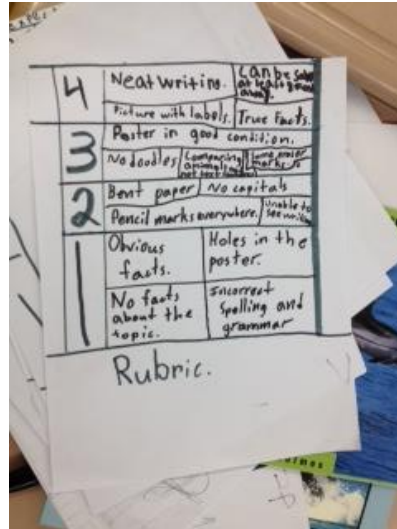 4
Neat writing.
Can be seen
at least
away.
Picture with labels.
True facts.
3
Poster in good condition.
No doodles
Comparing
animals
not text
Some
marks
2
Bent paper
No capitals
Pencil marks everywhere.
Unable to
see writing
1
Obvious
facts.
Holes in the
poster.
No facts
about the
topic.
Incorrect
Spelling and
grammar
Rubric.